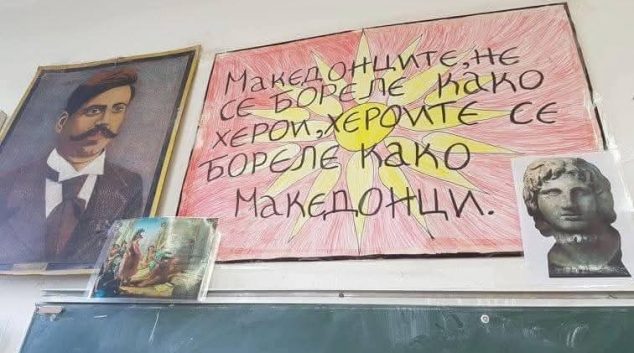 Македонците, не
се бореле како
херои, хероите се
бореле како
Македонци.